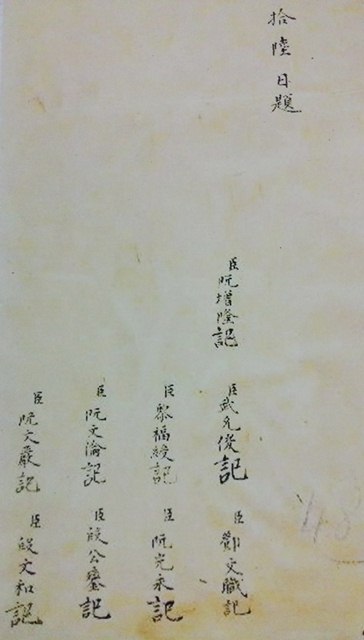 拾陸日題
臣阮增隆記
臣武允俊記
臣鄧文職記
臣黎福綬記
臣阮完永記
臣阮文倫記
臣段公 記
臣阮文嚴記
臣段文和記